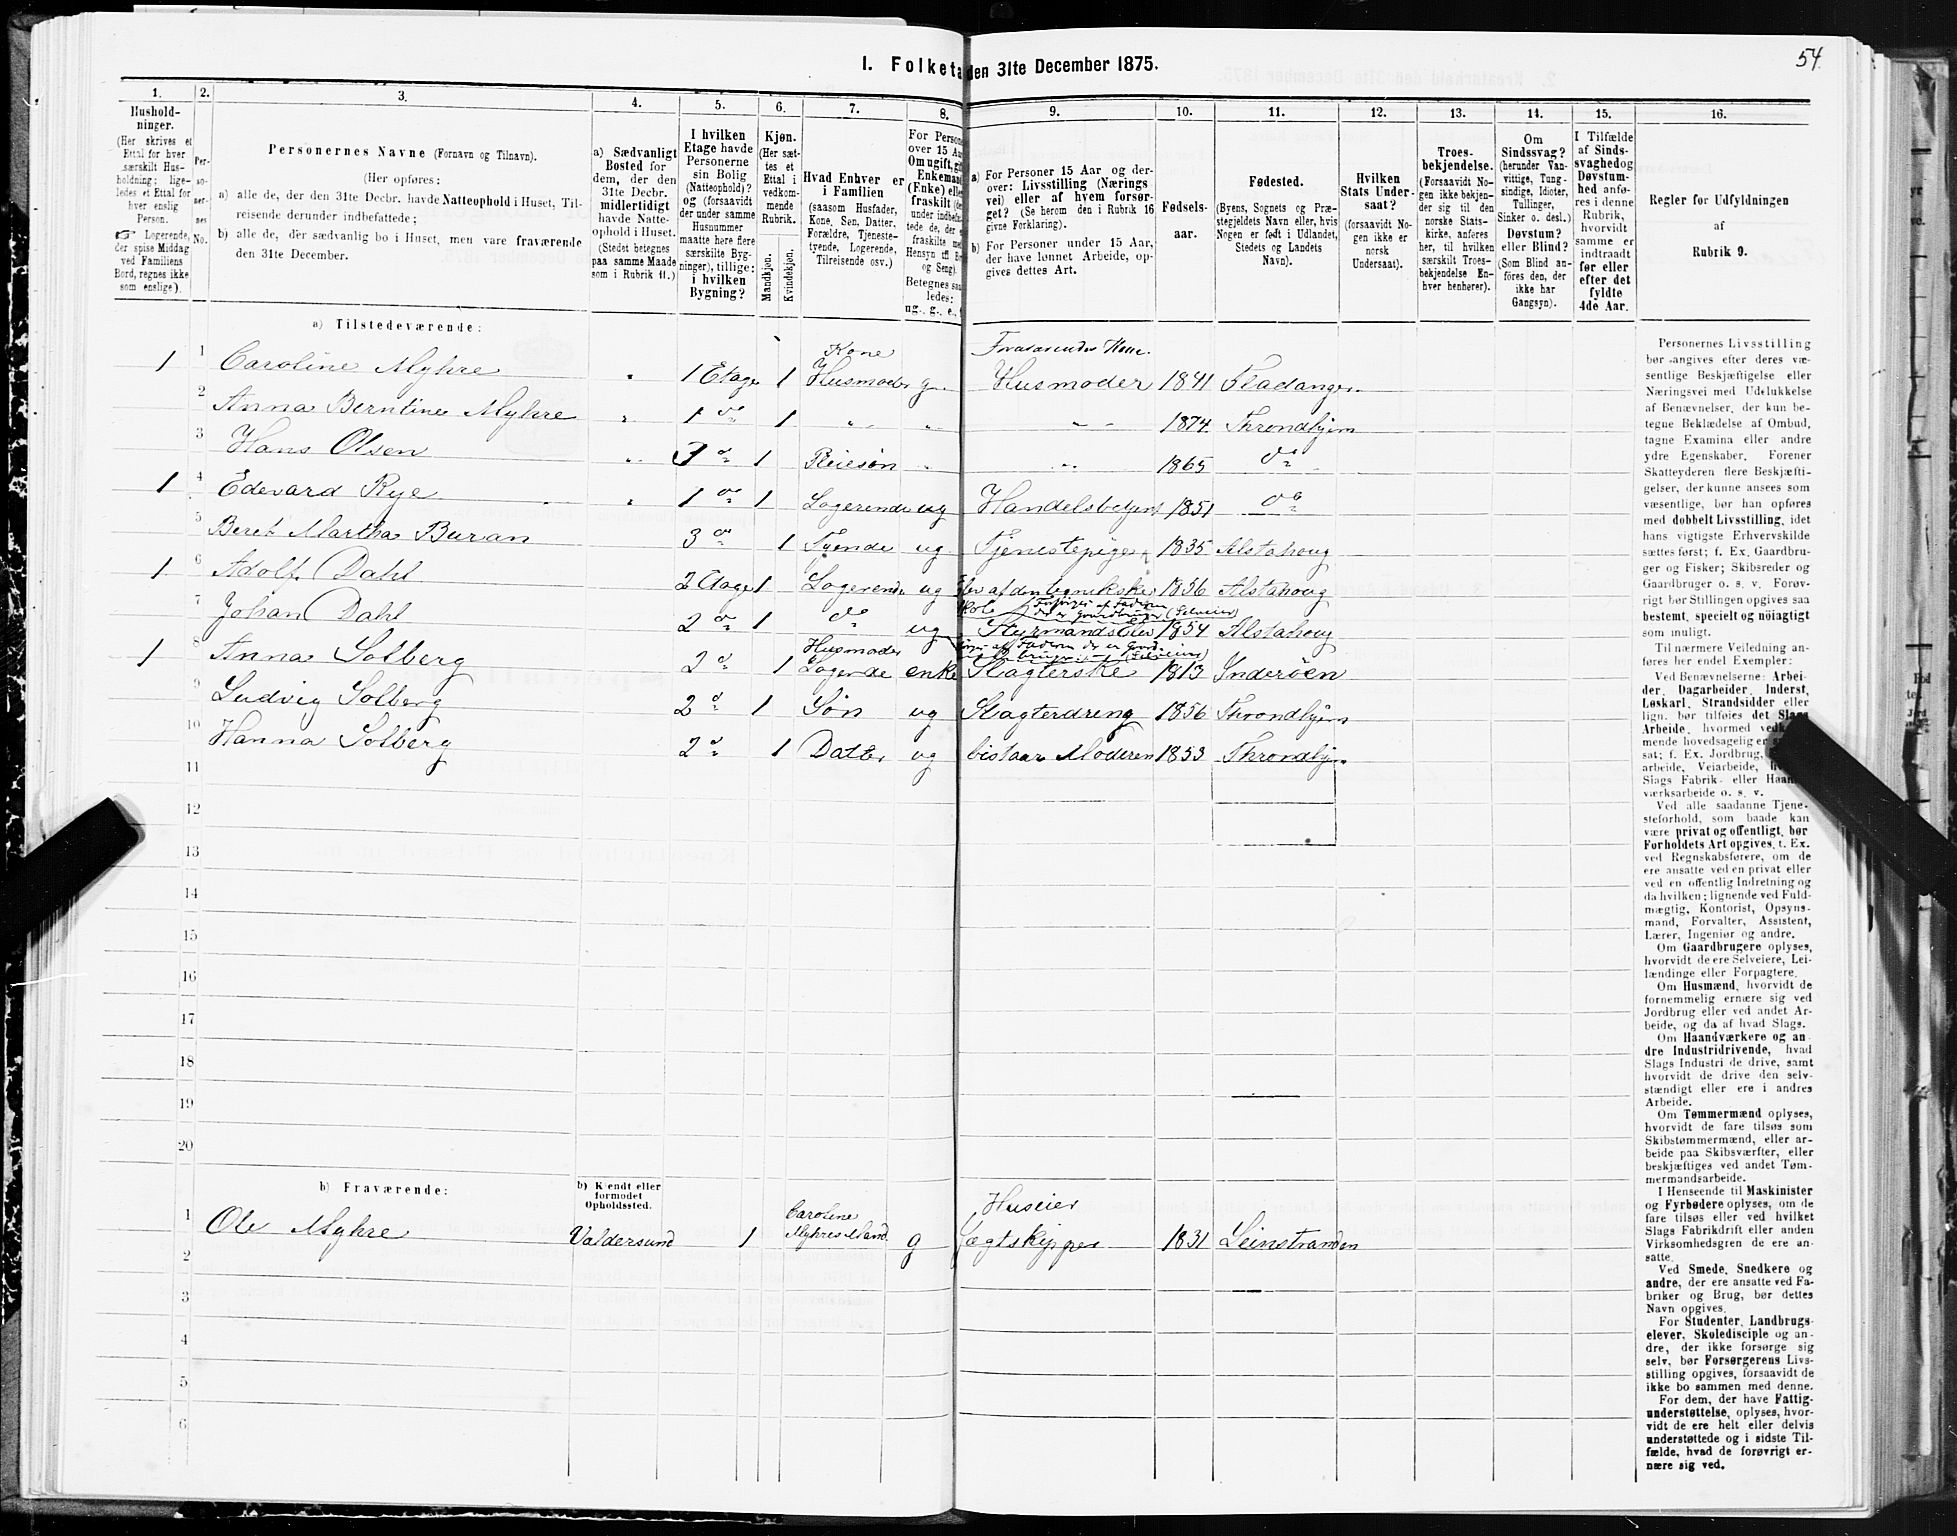 54
1. Folketa den 31te December 1875.
1. 2. 3. 4. 5. 6. 7. 8. 9. 10. 11. 12. 13. 14. 15. 16.
Hushold-
ninger.
(Her skrives et
Ettal for hver
særskilt Hus-
holdning; lige-
ledes et Ettal for
hver enslig
Person.
☞ Logerende,
der spise Middag
ved Familiens
Bord, regnes ikke
som enslige).
Per-
so-
ner-
nes
No.
Personernes Navne (Fornavn og Tilnavn).
(Her opføres:
a) alle de, der den 31te Decbr. havde Natteophold i Huset, Til-
reisende derunder indbefattede;
b) alle de, der sædvanlig bo i Huset, men vare fraværende
den 31te December.
a) Sædvanligt
Bosted for
dem, der den
31te Decbr.
midlertidigt
havde Natte-
ophold i Huset.
(Stedet betegnes
paa samme Maade
som i Rubrik 11.)
I hvilken
Etage havde
Personerne
sin Bolig
(Natteophold)?
og (forsaavidt
der under samme
Husnummer
maatte høre flere
særskilte Byg-
ninger), tillige:
i hvilken
Bygning?
Kjøn.
(Her sæt-
tes et
Ettal i
vedkom-
mende
Rubrik.
Mandkjøn.
Kvindekjøn.
Hvad Enhver er
i Familien
(saasom Husfader,
Kone, Søn, Datter,
Forældre, Tjeneste-
tyende, Logerende,
Tilreisende osv.)
For Person
over 15 Aa
Om ugift, gif
Enkemand
(Enke) elle
fraskilt (de
under indbefa
tede de, de
fraskilte me
Hensyn til B
og Seng).
Betegnes saa
ledes:
ug., g., e.,
a) For Personer 15 Aar og der-
over: Livsstilling (Nærings
vei) eller af hvem forsør-
get? (Se herom den i Rubrik 16
givne Forklaring).
b) For Personer under 15 Aar,
der have lønnet Arbeide, op-
gives dettes Art.
Fødsels-
aar.
Fødested.
(Byens, Sognets og Præ-
stegjeldets Navn eller, hvis
Nogen er født i Udlandet,
Stedets og Landets
Navn).
Hvilken
Stats Under-
saat?
(forsaavidt No-
gen ikke er
norsk
Undersaat).
Troes-
bekjendelse.
(Forsaavidt No-
gen ikke bekjen-
der sig til den
norske Stats-
kirke, anføres
her, til hvilken
særskilt Troes-
bekjendelse En-
hver henhører).
Om
Sindssvag?
(herunder Van-
vittige, Tung-
sindige, Idioter,
Tullinger,
Sinker o. desl.)
Døvstum?
eller Blind?
(Som Blind an-
føres den, der
ikke har
Gangsyn).
I Tilfælde
af Sinds-
svaghed og
Døvstum-
hed anfø-
res i denne
Rubrik,
hvorvidt
samme er
indtraadt
før eller
efter det
fyldte
4de Aar.
Regler for Udfyldningen
af
Rubrik 9.
a) Tilstedeværende:
Kone Fraværendes Kone.
1 1 Caroline Myhre " 1 Etage 1 Husmoder g Husmoder 1841 Fladanger
2 Anna Berntine Myhre " 1 do 1 " " " 1874 Throndhjem
3 Hans Olsen " 3 do 1 Pleiesøn " " 1865 do
1 4 Edevard Rye " 1 do 1 Logerende ug Handelsbetjent 1851 do
5 Beret Martha Buran 3 do 1 Tyende ug Tjenestepige 1835 Alstahoug
1 6 Adolf Dahl 2 Etage 1 Logerende ug Elev af den tegnekske 1856 Alstahoug
Skole Forsørges af Faderen
der er Gaardbruger (Selveier)
7 Johan Dahl 2 do 1 do ug Styrmandselev 1854 Alstahoug
Husmoder
1 8 Anna Solberg 2 do 1 Logerende enke Slagterske 1813 Inderøen
9 Ludvig Solberg 2 do 1 Søn ug Slagterdreng 1856 Throndhjem
10 Hanna Solberg 2 do 1 Datter ug bistaar Moderen 1853 Throndhjem
11
12
13
14
15
16
17
18
19
20
b) Fraværende:
b) Kjendt eller
formodet
Opholdssted.
Caroline Huseier
1 Ole Myhre Valdersund 1 Myhres Mand g Jægtskipper 1831 Leinstranden
2
3
4
5
6
Personernes Livsstilling
bør angives efter deres væ-
sentlige Beskjæftigelse eller
Næringsvei med Udelukkelse
af Benævnelser, der kun be-
tegne Beklædelse af Ombud,
tagne Examina eller andre
ydre Egenskaber. Forener
Skatteyderen flere Beskjæfti-
gelser, der kunne ansees som
væsentlige, bør han opføres
med dobbelt Livsstilling, idet
hans vigtigste Erhvervskilde
sættes først; f. Ex. Gaardbru-
ger og Fisker; Skibsreder og
Gaardbruger o. s. v. Forøv-
rigt bør Stillingen opgives saa
bestemt, specielt og nøiagtigt
som muligt.
Til nærmere Veiledning an-
føres her endel Exempler:
Ved Benævnelserne: Arbei-
der, Dagarbeider, Inderst,
Løskarl, Strandsidder eller
lign. bør tilføies det Slags
Arbeide, hvormed vedkom-
mende hovedsagelig er
sat; f. Ex. Jordbrug,
arbeide, Veiarbeide,
Slags Fabrik- eller Haand-
værksarbeide o. s. v.
Ved alle saadanne Tjene-
steforhold, som baade kan
være privat og offentligt, bør
Forholdets Art opgives, t. Ex.
ved Regnskabsførere, om de
ere ansatte ved en privat eller
ved en offentlig Indretning og
da hvilken; lignende ved Fuld-
mægtig, Kontorist, Opsyns-
mand, Forvalter, Assistent,
Lærer, Ingeniør og andre.
Om Gaardbrugere oplyses,
hvorvidt de ere Selveiere, Lei-
lændinge eller Forpagtere.
Om Husmænd, hvorvidt de
fornemmelig ernære sig ved
Jordbrug eller ved andet Ar-
beide, og da af hvad Slags.
Om Haandværkere og an-
dre Industridrivende, hvad
Slags Industri de drive, samt
hvorvidt de drive den selv-
stændigt eller ere i andres
Arbeide.
Om Tømmermænd oplyses,
hvorvidt de fare tilsøs som
Skibstømmermænd, eller ar-
beide paa Skibsværfter, eller
beskjæftiges ved andet Tøm-
mermandsarbeide.
I Henseende til Maskinister
og Fyrbødere oplyses, om de
fare tilsøs eller ved hvilket
Slags Fabrikdrift eller anden
Virksomhedsgren de ere an-
satte.
Ved Smede, Snedkere og
andre, der ere ansatte ved Fa-
briker og Brug, bør dettes
Navn opgives.
For Studenter, Landbrugs-
elever, Skoledisciple og an-
dre, der ikke forsørge sig
selv, bør Forsørgerens Livs-
stilling opgives, forsaavidt de
ikke bo sammen med denne.
For dem, der have Fattig-
understøttelse, oplyses, hvor-
vidt de ere helt eller delvis
understøttede og i sidste Til-
fælde, hvad de forøvrigt er-
nære sig ved.